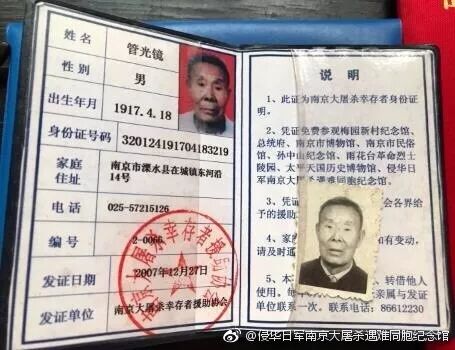 姓名 管光镜
性别 男
出生年月 1917.4.18
身份证号码 320124191704183219
家庭住址 南京市溧水县在城镇东河沿
14号
电话 025-57215126
编号 2-0066
发证日期 2007年12月27日
发证单位 南京大屠杀幸存者援助协会
南京大屠杀幸存者援助协会
说明
1、此证为南京大屠杀幸存者身份证
明。
2、凭证免费参观梅园新村纪念馆、
总统府、南京市博物馆、南京市民俗
馆、孙中山纪念馆、雨花台革命烈士
陵园、太平天国历史博物馆、侵华日
军南京大屠杀遇难同胞纪念馆。
3、凭证
会各界给
予的援助
4、家庭
如有变动,
请及时通
5、本
转借他人
使用。
亲属与发证
单位联系一次。联系电话:86612230
@侵华日军南京大屠杀遇难同胞纪念馆